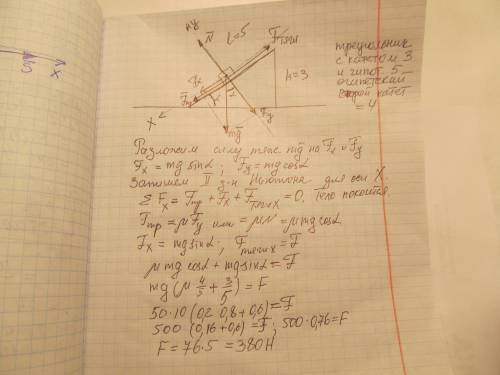 y
N
l=5
Fтяги
h=3
Fx
Fтр
Fy
X
mg
α
X
треугольник
с катетом 3
и гипот. 5 –
египетский
второй катет
= 4
Разложим силу тяж mg на Fx и Fy
Fx = mg sinα ; Fy = mg cosα
Запишем II з-н Ньютона для оси X
Σ Fx = Fтр + Fx + Fтяги x = 0. Тело покоится.
Fтр = μFy или = μN = μmg cosα
Fx = mg sinα ; Fтяги x = F
μ mg cosα + mg sinα = F
mg (μ · 4/5 + 3/5) = F
50·10 (0,2·0,8+0,6) = F
500 (0,16+0,6) = F ; 500·0,76 = F
F = 76·5 = 380 Н